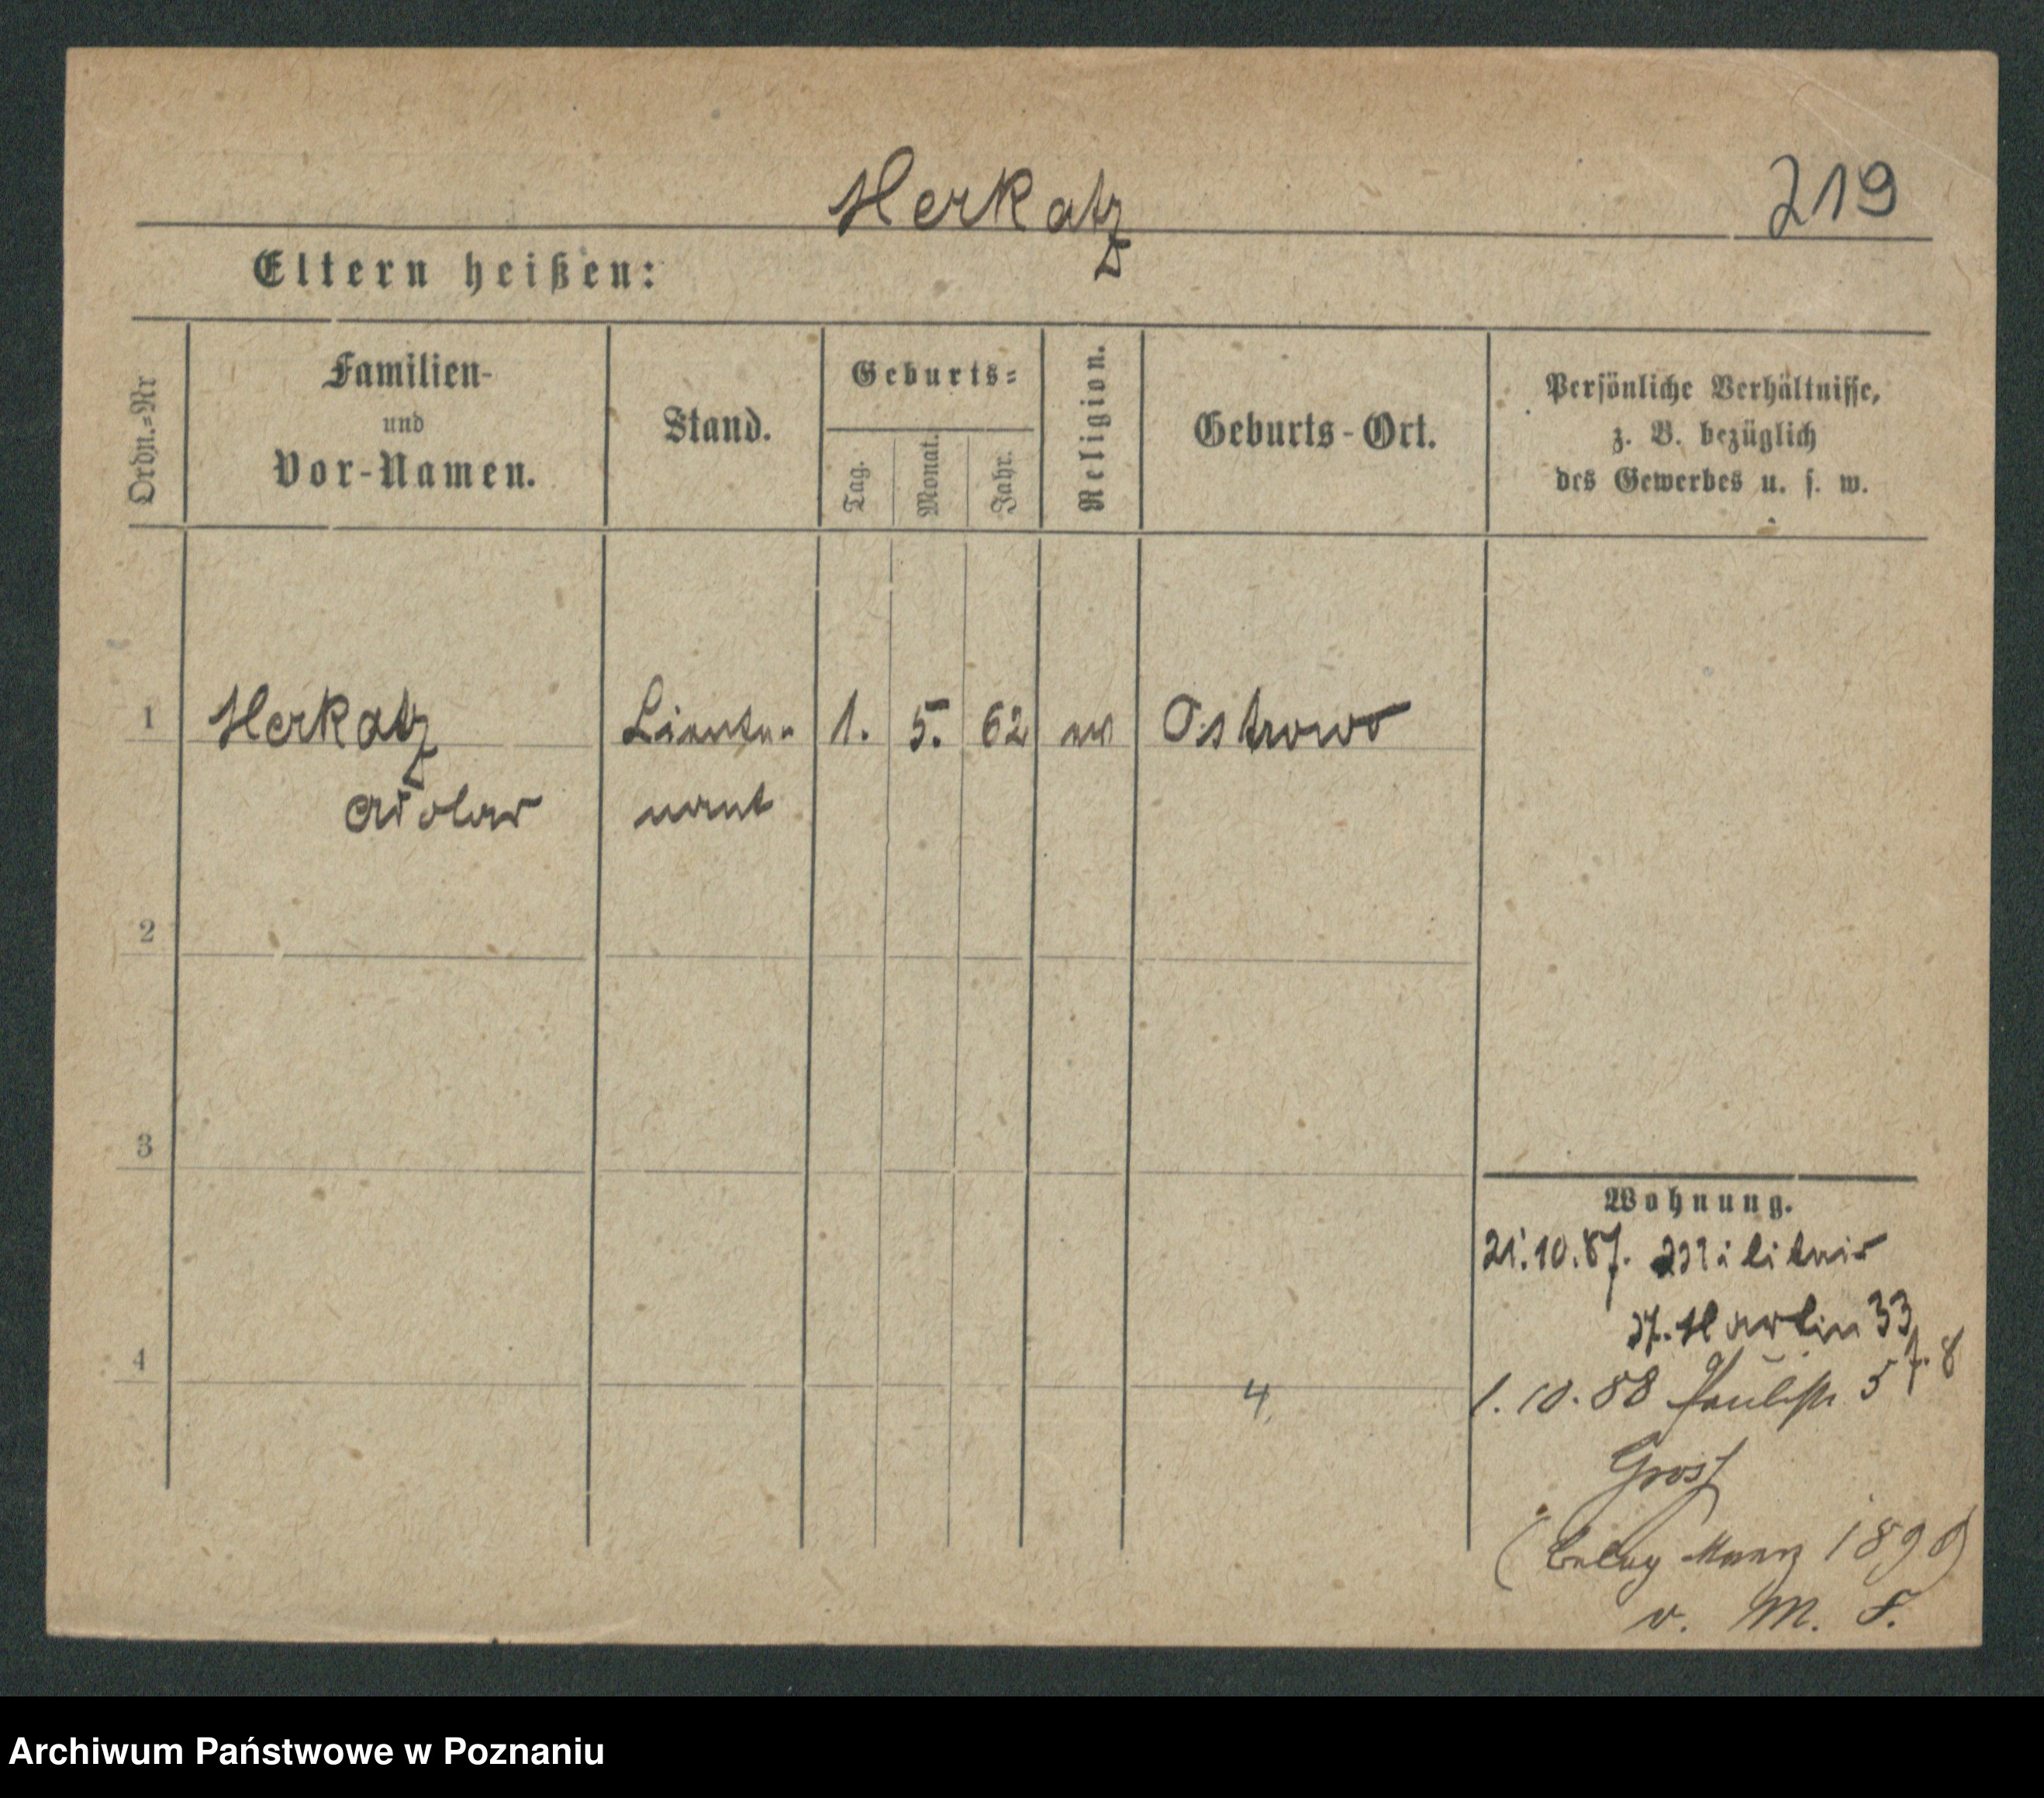 Herkatz
219
Eltern heißen:
Ordn.-Nr
Familien-
und
Vor-Namen.
Stand.
Geburts-
Tag.
Monat.
Jahr.
Religion.
Geburts-Ort.
Persönliche Verhältnisse,
z. B. bezüglich
des Gewerbes u. s. w.
1
Herkatz
Lieute-
1.
5.
62
Ostrowo
nant
2
3
4
4
Wohnung.
21.10.87. Militair
St. Martin 33
1.10.88 Paulistr 5
Grost
März 1890
v. M. F.
Archiwum Państwowe w Poznaniu